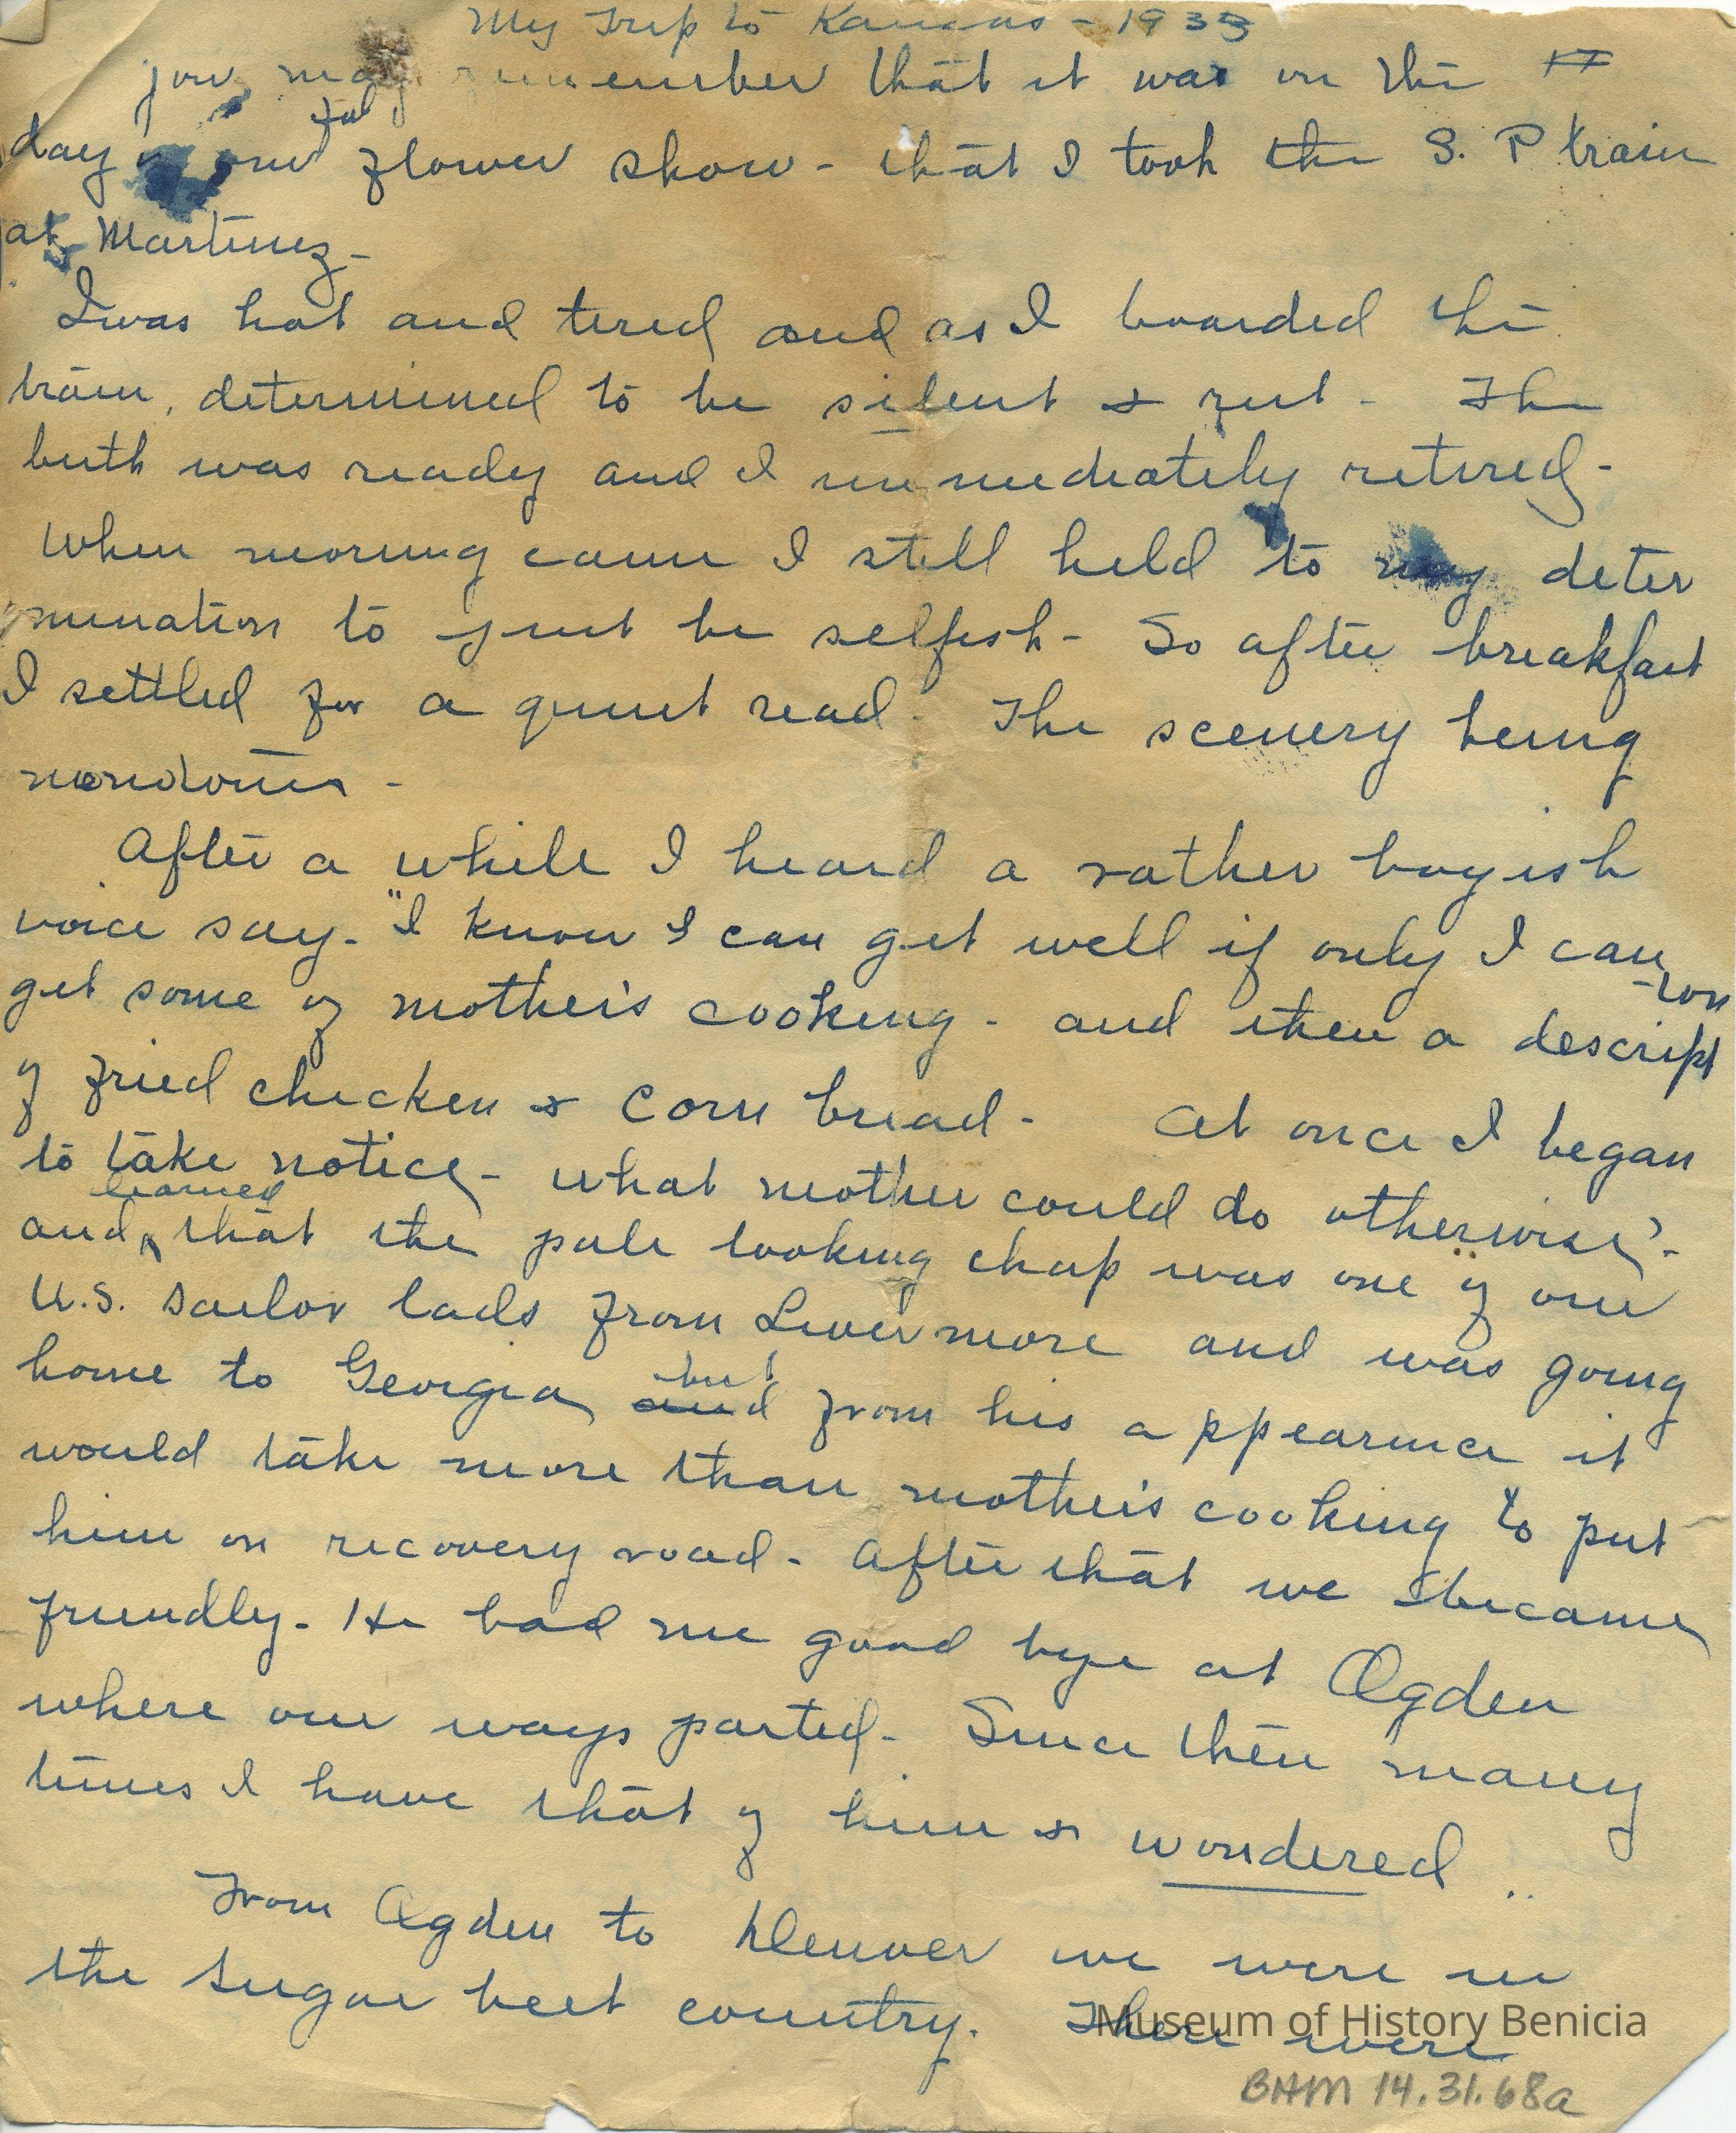 My Trip to Kansas - 1935
you may remember that it was on the
day our fal flower show - that I took the S. P train
at Martinez -
I was hot and tired and as I boarded the
train, determined to be silent & rest - The
buth was ready and I immediately retired -
When morning came I still held to my deter
mination to just be selfish - So after breakfast
I settled for a quiet read - The scenery being
After a while I heard a rather boyish
voice say - "I know I can get well if only I can
get some of mother's cooking - and then a description
of fried chicken & corn bread - At once I began
to take notice - what mother could do otherwise? -
and learned that the pale looking chap was one of our
U.S. Sailor lads from Livermore and was going
home to Georgia and but from his appearance it
would take more than mother's cooking to put
him on recovery road - After that we became
friendly - He bad me good bye at Ogden
where our ways parted - Since then many
times I have that of him & wondered ..
From Ogden to Denver we were in
the sugar beet country. There were
Museum of History Benicia
BHM 14.31.68a